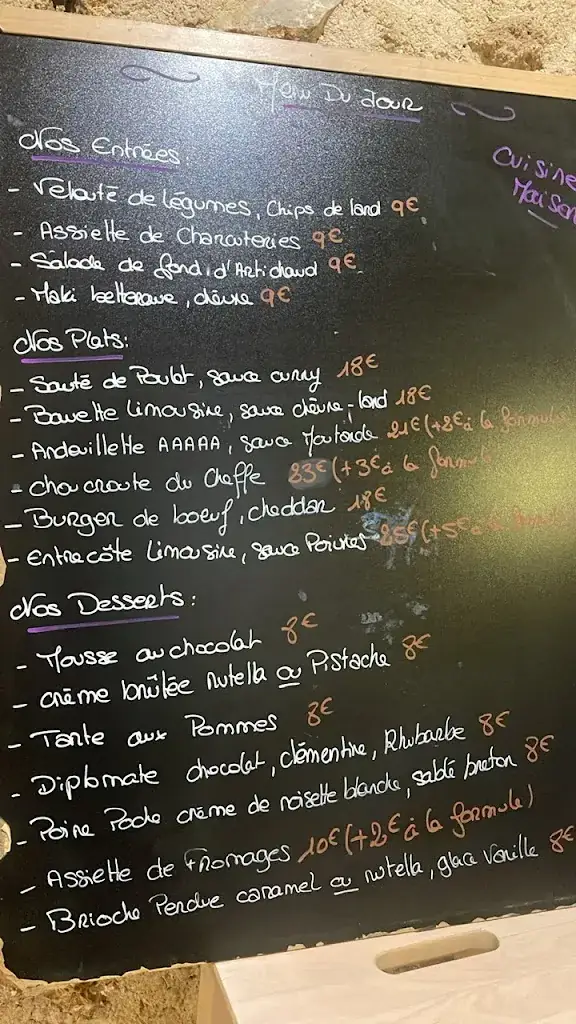 Menu Du Jour
Cuisine
Maison
Nos Entrées:
- Velouté de légumes, Chips de lard 9€
- Assiette de Charcuteries 9€
- Salade de fond d'Artichaud 9€
- Maki betterave, chèvre 9€
Nos Plats:
- Sauté de Poulet, sauce curry 18€
- Bavette Limousine, sauce chèvre-lard 18€
- Andouillette AAAAA, sauce Moutarde 21€ (+2€ à la formule)
- choucroute du Cheffe 23€ (+3€ à la formule
- Burger de boeuf, cheddar 18€
- Entrecôte Limousine, sauce Poivres 25€ (+5€ à la formule)
Nos Desserts:
- Mousse au chocolat 8€
- crème brûlée nutella ou Pistache 8€
- Tarte aux Pommes 8€
- Diplomate chocolat, clémentine, Rhubarbe 8€
- Poire Poche crème de noisette blanche, sablé breton 8€
- Assiette de Fromages 10€ (+2€ à la formule)
- Brioche Perdue caramel ou nutella, glace vanille 8€